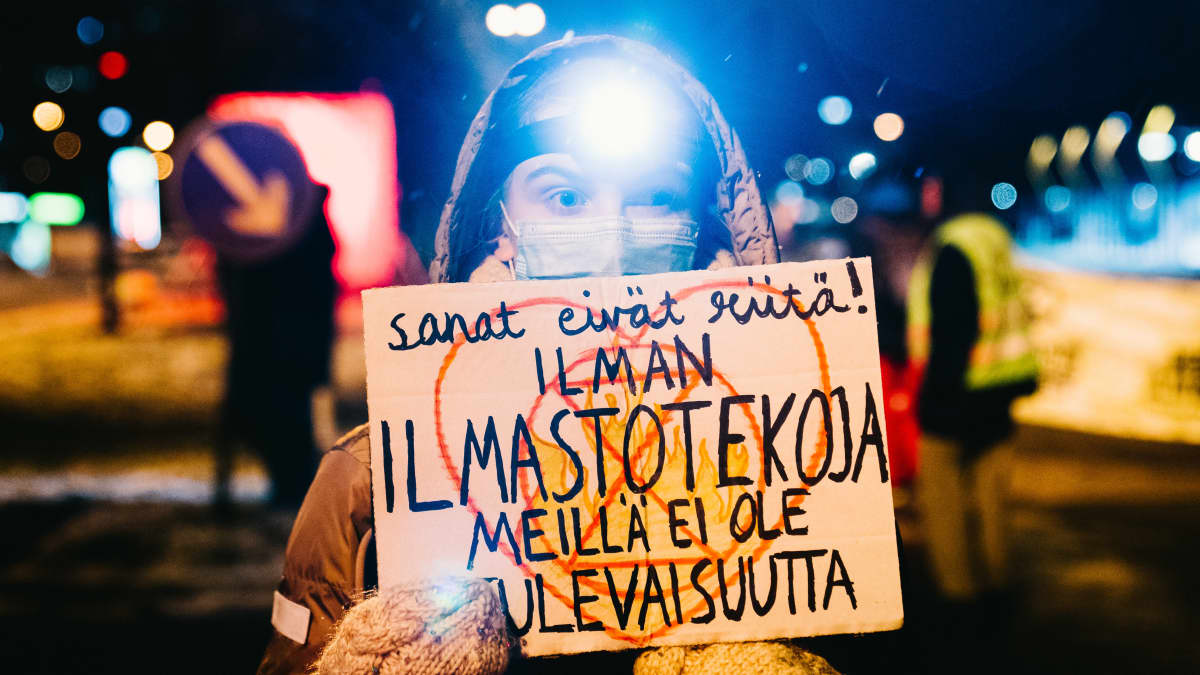 sanat eivät riitä!
ILMAN
ILMASTOTEKOJA
MEILLÄ EI OLE
ULEVAISUUTTA